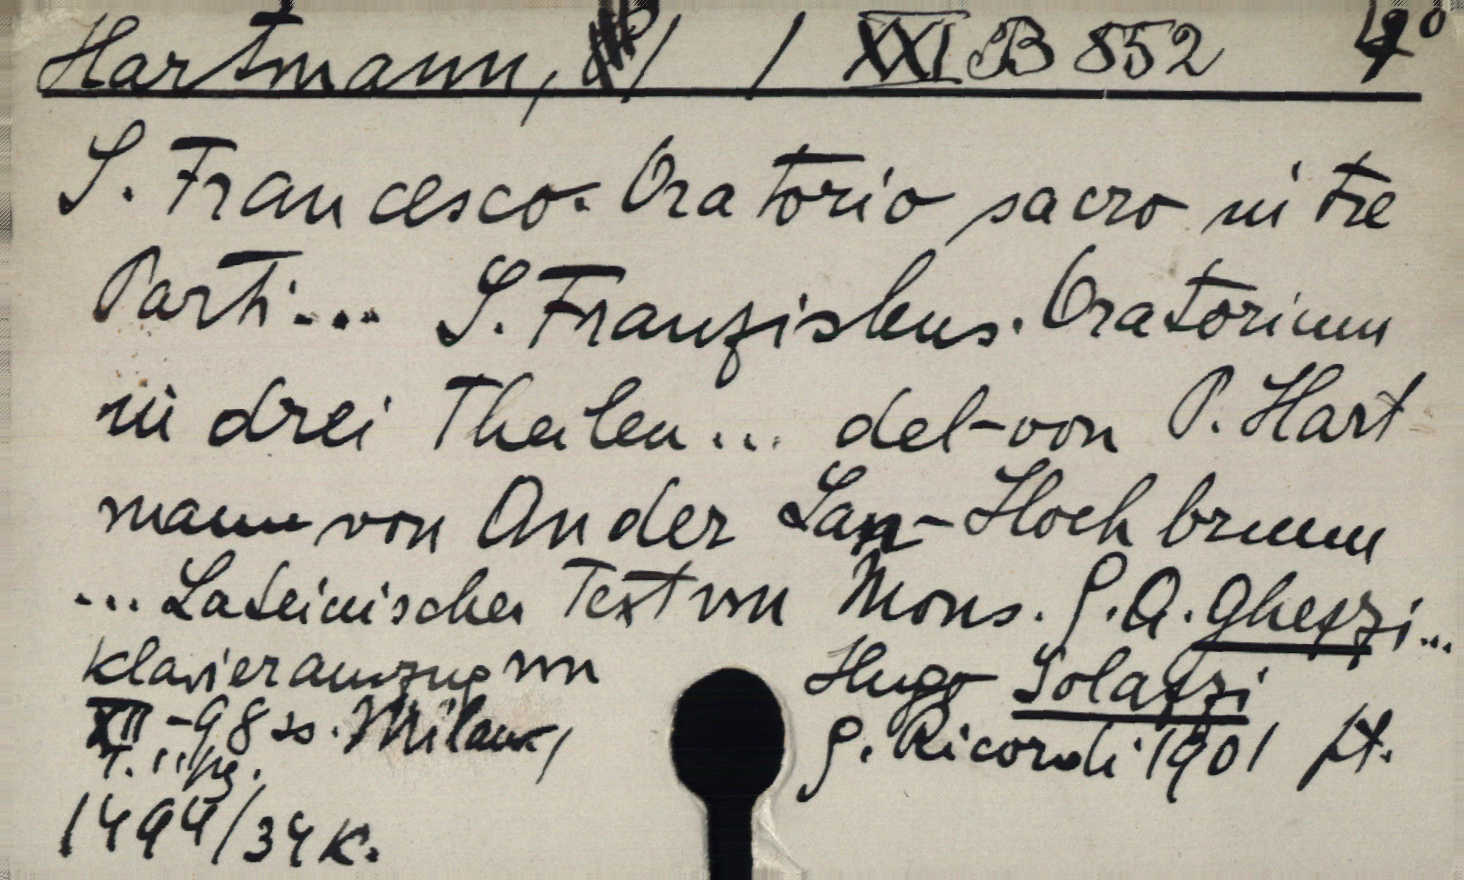 Hartmann, / / XXI B 852 4°
S. Francesco. Oratorio sacro in tre
Parti... S. Franziskus. Oratorium
in drei Theilen... del-von P. Hart
mann von An der Lan-Hochbrunn
... Lateinischer Text von Mons. G. A. Ghezzi...
Klavierauszug von Hugo Solazzi
XII-98 ss. Milano, G. Ricordi 1901 ft.
1494/34 K.